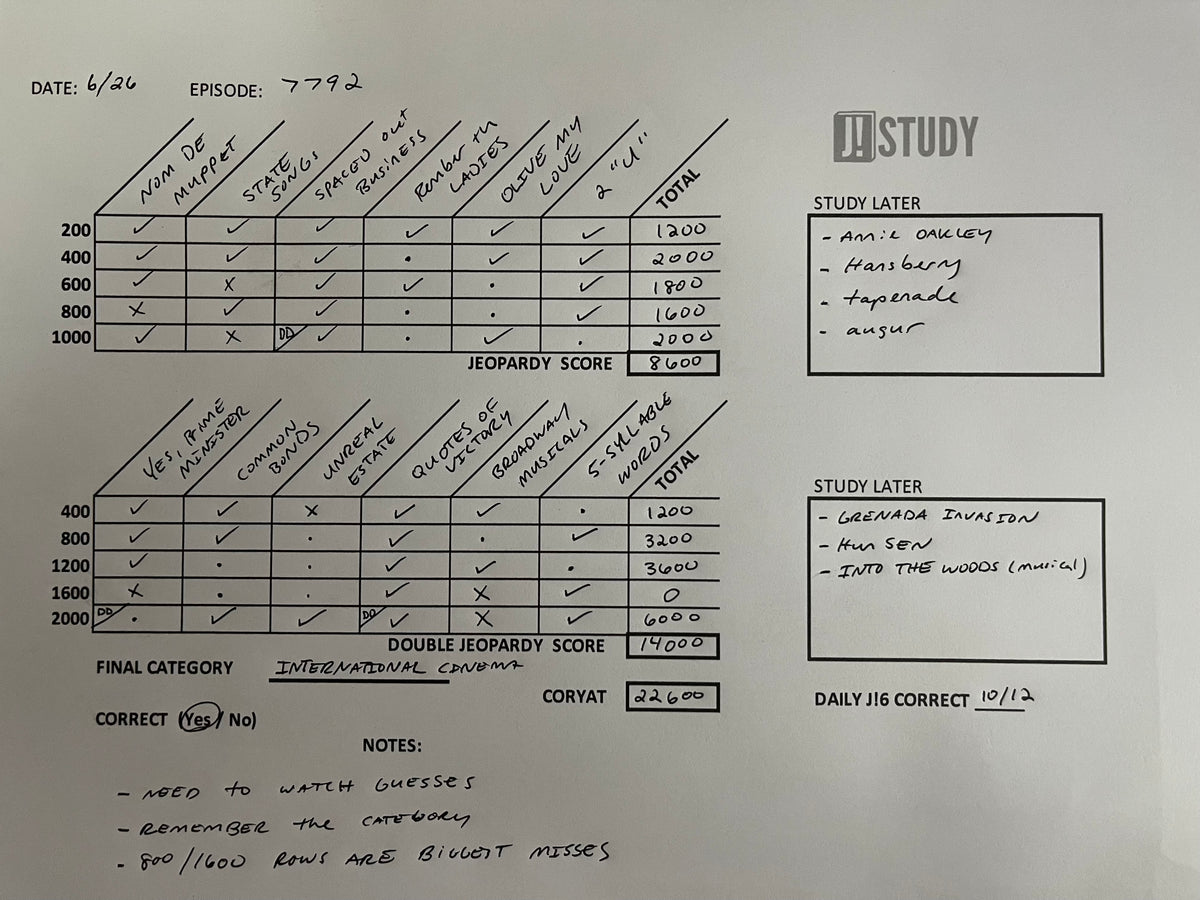 DATE: 6/26 EPISODE: 7792
J! STUDY
NOM DE MUPPET
STATE SONGS
SPACED OUT BUSINESS
LADIES
OLIVE MY LOVE
2 "U"
TOTAL
200 ✓ ✓ ✓ ✓ ✓ ✓ 1200
400 ✓ ✓ ✓ • ✓ ✓ 2000
600 ✓ X ✓ ✓ • ✓ 1800
800 X ✓ ✓ • • ✓ 1600
1000 ✓ X DD ✓ • ✓ • 2000
JEOPARDY SCORE 8600
STUDY LATER
- Annie OAKLEY
- Hansberry
- tapenade
- augur
YES, PRIME MINISTER
COMMON BONDS
UNREAL ESTATE
QUOTES OF VICTORY
BROADWAY MUSICALS
5-SYLLABLE WORDS
TOTAL
400 ✓ ✓ X ✓ ✓ • 1200
800 ✓ ✓ • ✓ • ✓ 3200
1200 ✓ • • ✓ ✓ • 3600
1600 X • • ✓ X ✓ 0
2000 DD • ✓ ✓ DD ✓ X ✓ 6000
DOUBLE JEOPARDY SCORE 14000
STUDY LATER
- GRENADA INVASION
- Hun SEN
- INTO THE WOODS (musical)
FINAL CATEGORY INTERNATIONAL CINEMA
CORYAT 22600
DAILY J!6 CORRECT 10/12
CORRECT (Yes / No)
NOTES:
- NEED to WATCH GUESSES
- REMEMBER the CATEGORY
- 800/1600 ROWS ARE BIGGEST MISSES